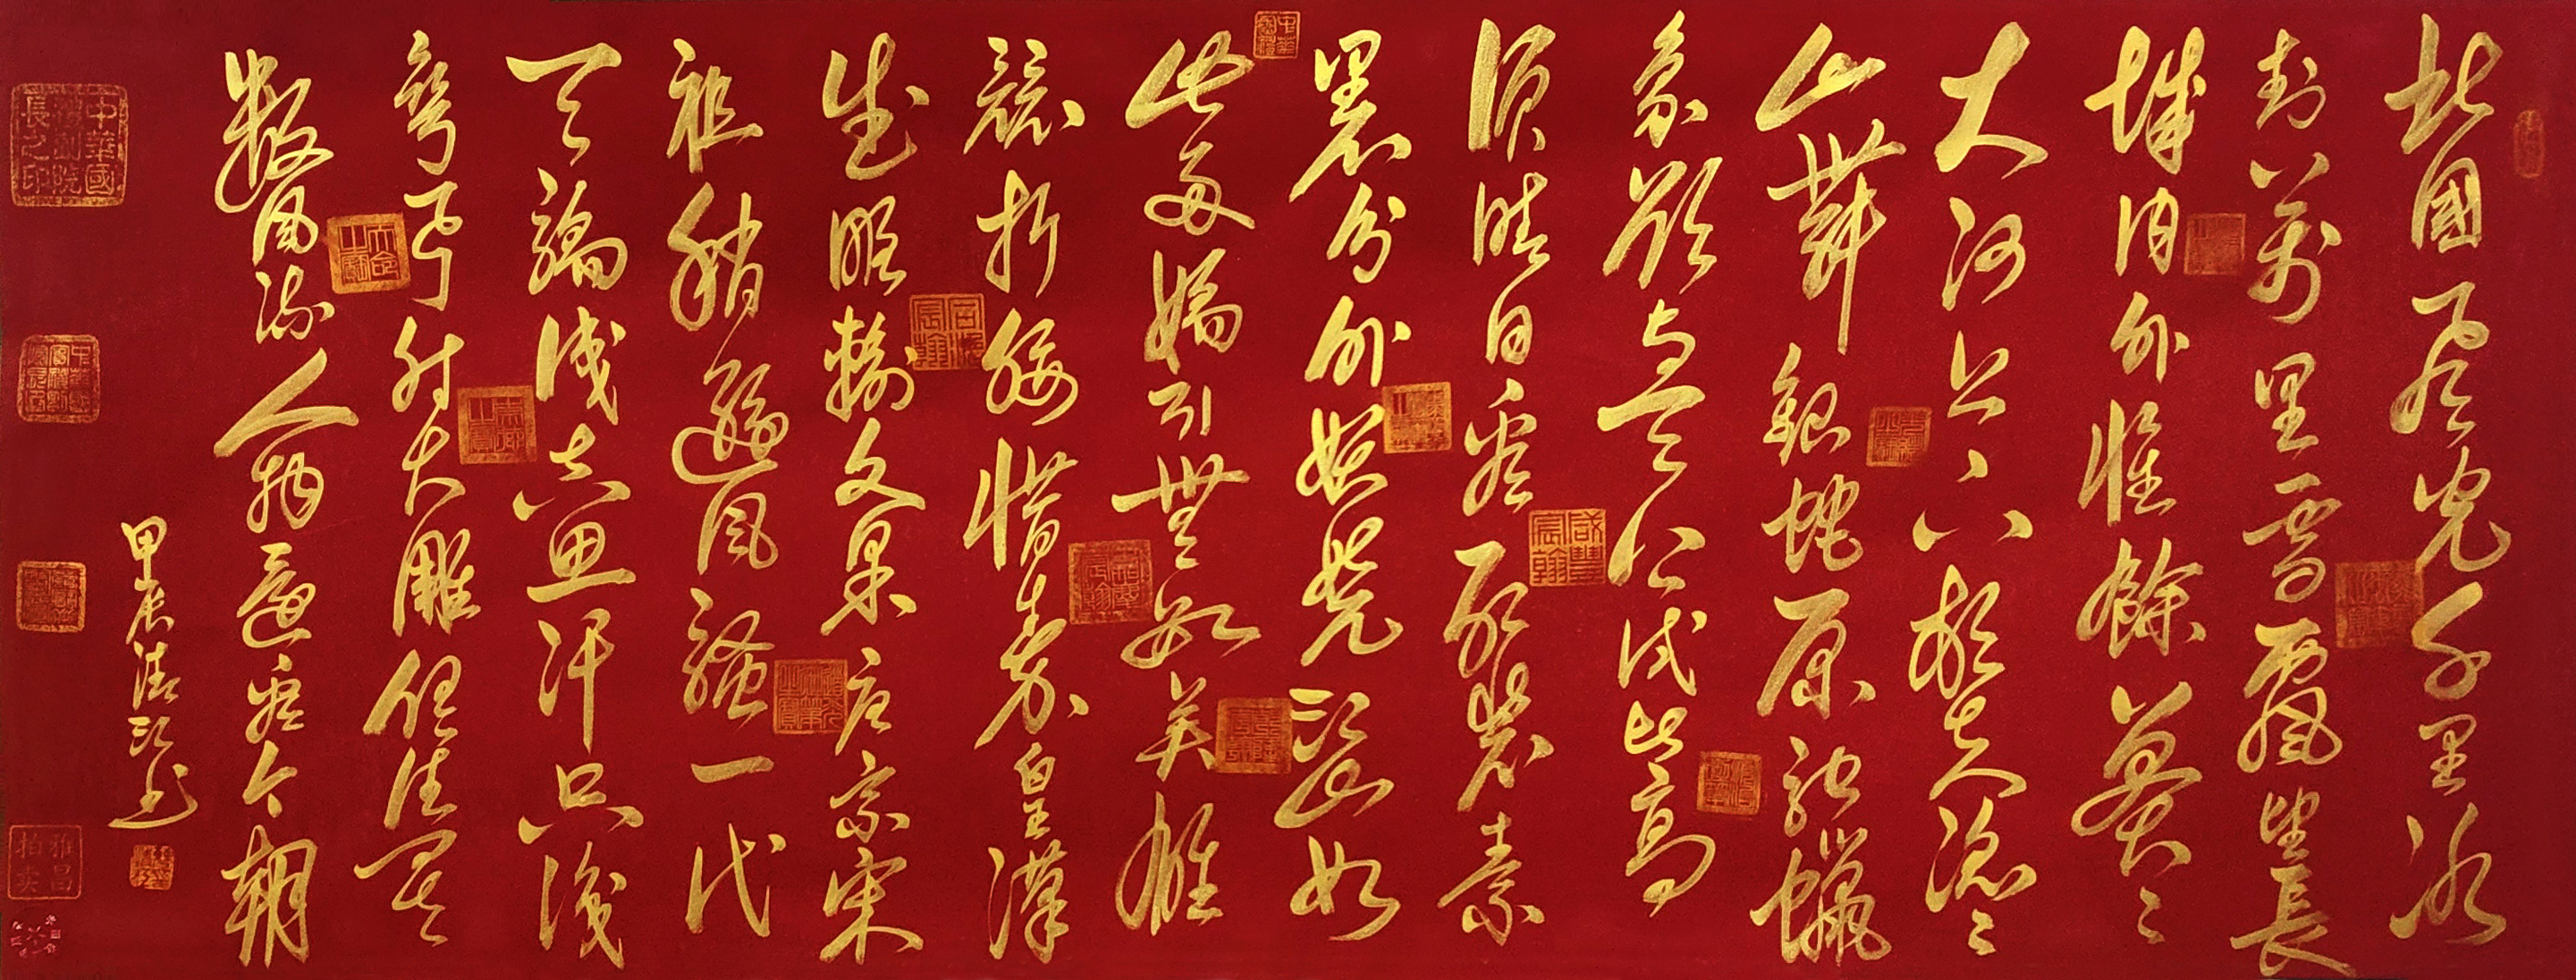 北國風光千里冰
封萬里雪飄望長
城内外惟餘莽々
大河上下頓失滔々
山舞銀蛇原馳蠟
象欲與天公試比高
須晴日看紅裝素
裹分外妖嬈江山如
此多嬌引無數英雄
競折腰惜秦皇漢
武略輸文采唐宗宋
祖稍遜風騷一代
天驕成吉思汗只識
彎弓射大雕俱往矣
數風流人物還看今朝
甲辰 江书
雅昌拍卖